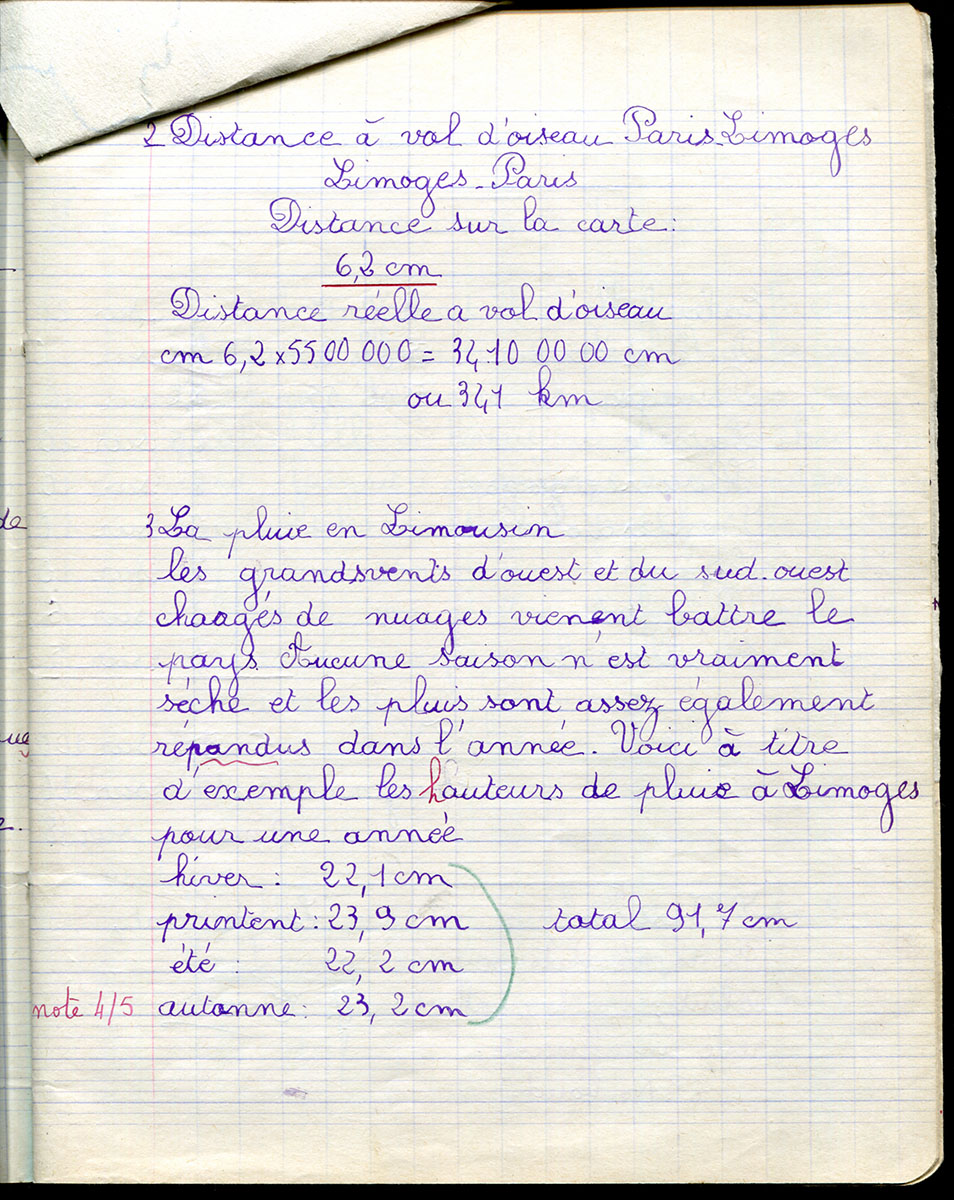 2 Distance à vol d'oiseau Paris-Limoges
Limoges-Paris
Distance sur la carte :
6,2 cm
Distance réelle a vol d'oiseau
cm 6,2 x 5500 000 = 34 10 00 00 cm
ou 341 km
3 La pluie en Limousin
les grands vents d'ouest et du sud-ouest
chaagés de nuages vienent battre le
pays. Aucune saison n'est vraiment
sèche et les pluis sont assez également
répandus dans l'année. Voici à titre
d'exemple les hauteurs de pluie à Limoges
pour une année
hiver : 22,1 cm
printent : 23,9 cm total 91,7 cm
été : 22,2 cm
note 4/5 autonne : 23,2 cm